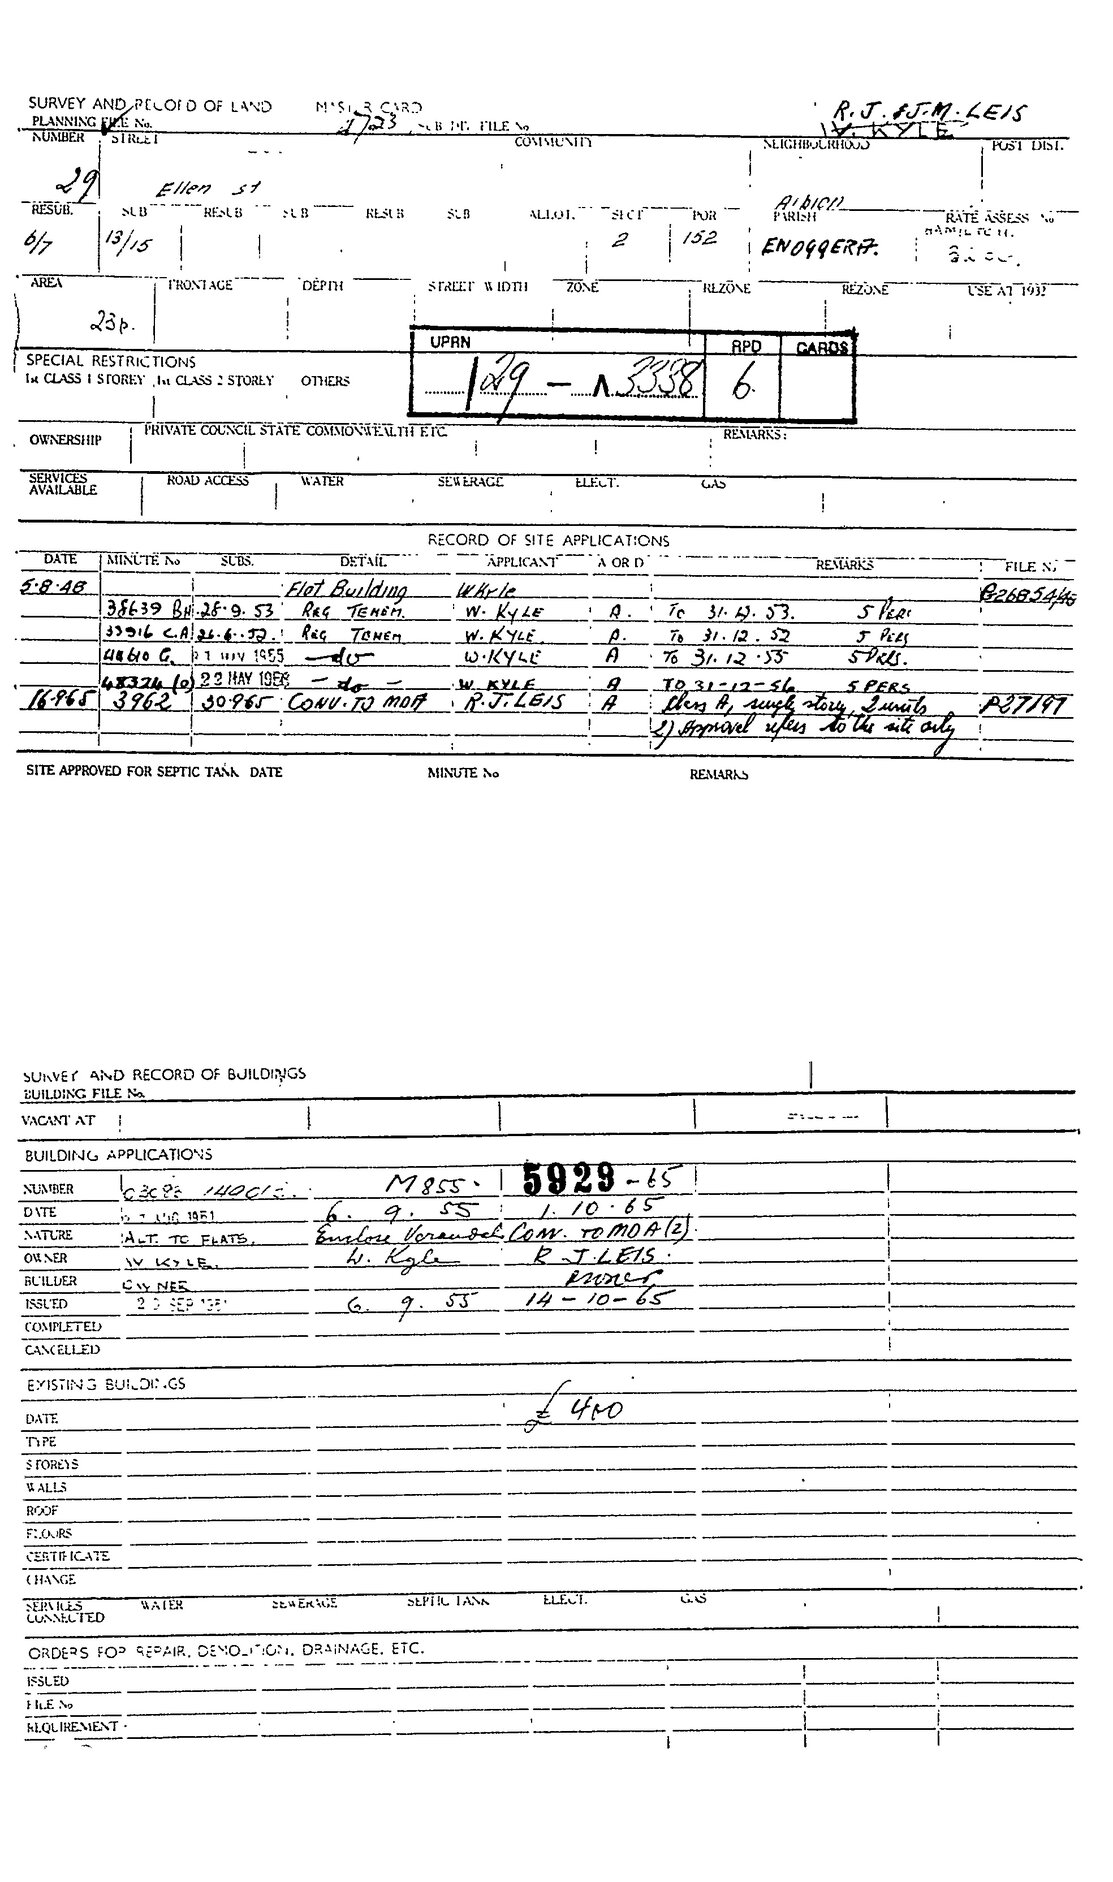 SURVEY AND RECORD OF LAND MASTER CARD R. J. & J. M. LEIS
PLANNING FILE No. 1/23 SUB DIV. FILE No W. KYLE
NUMBER STREET COMMUNITY NEIGHBOURHOOD POST DIST.
29 Ellen St Albion
RESUB. SUB RESUB SUB RESUB SUB ALLOT. SECT POR PARISH RATE ASSESS No
6/7 13/15 2 152 ENOGGERA. HAMILTON.
AREA FRONTAGE DEPTH STREET WIDTH ZONE REZONE REZONE USE AT 1932
23p.
UPRN RPD CARDS
129 - 3338 6.
SPECIAL RESTRICTIONS
1st CLASS 1 STOREY 1st CLASS 2 STOREY OTHERS
OWNERSHIP PRIVATE COUNCIL STATE COMMONWEALTH ETC. REMARKS:
SERVICES AVAILABLE ROAD ACCESS WATER SEWERAGE ELECT. GAS
RECORD OF SITE APPLICATIONS
DATE MINUTE No SUBS. DETAIL APPLICANT A OR D REMARKS FILE No
5.8.48 Flat Building W Kyle
38639 BH 28.9.53 REG TENEM. W. KYLE A. To 31.12.53. 5 PERS
33916 C.A 26.6.52. REG TENEM W. KYLE. A. To 31.12.52 5 PERS
44610 G. NOV 1955 -do W. KYLE A To 31.12.55 5 PERS.
48324 (O) 22 MAY 1956 -do- W. KYLE A TO 31-12-56 5 PERS
16.9.65 3962 30.9.65 CONV. TO MDA R.J. LEIS A Class A, single story, 2 units P27/97
2) Approval refers to the site only
SITE APPROVED FOR SEPTIC TANK DATE MINUTE No REMARKS
SURVEY AND RECORD OF BUILDINGS
BUILDING FILE No.
VACANT AT
BUILDING APPLICATIONS
NUMBER M855. 5929-65
DATE AUG 1951 6. 9. 55 1.10.65
NATURE ALT. TO FLATS. Enclose Verandah CONV. TO MDA (2).
OWNER W KYLE. W. Kyle R J. LEIS.
BUILDER OWNER owner
ISSUED SEP 1951 6. 9. 55 14-10-65
COMPLETED
CANCELLED
EXISTING BUILDINGS
£ 400
DATE
TYPE
STOREYS
WALLS
ROOF
FLOORS
CERTIFICATE
CHANGE
SERVICES CONNECTED WATER SEWERAGE SEPTIC TANK ELECT. GAS
ORDERS FOR REPAIR, DEMOLITION, DRAINAGE, ETC.
ISSUED
FILE No
REQUIREMENT